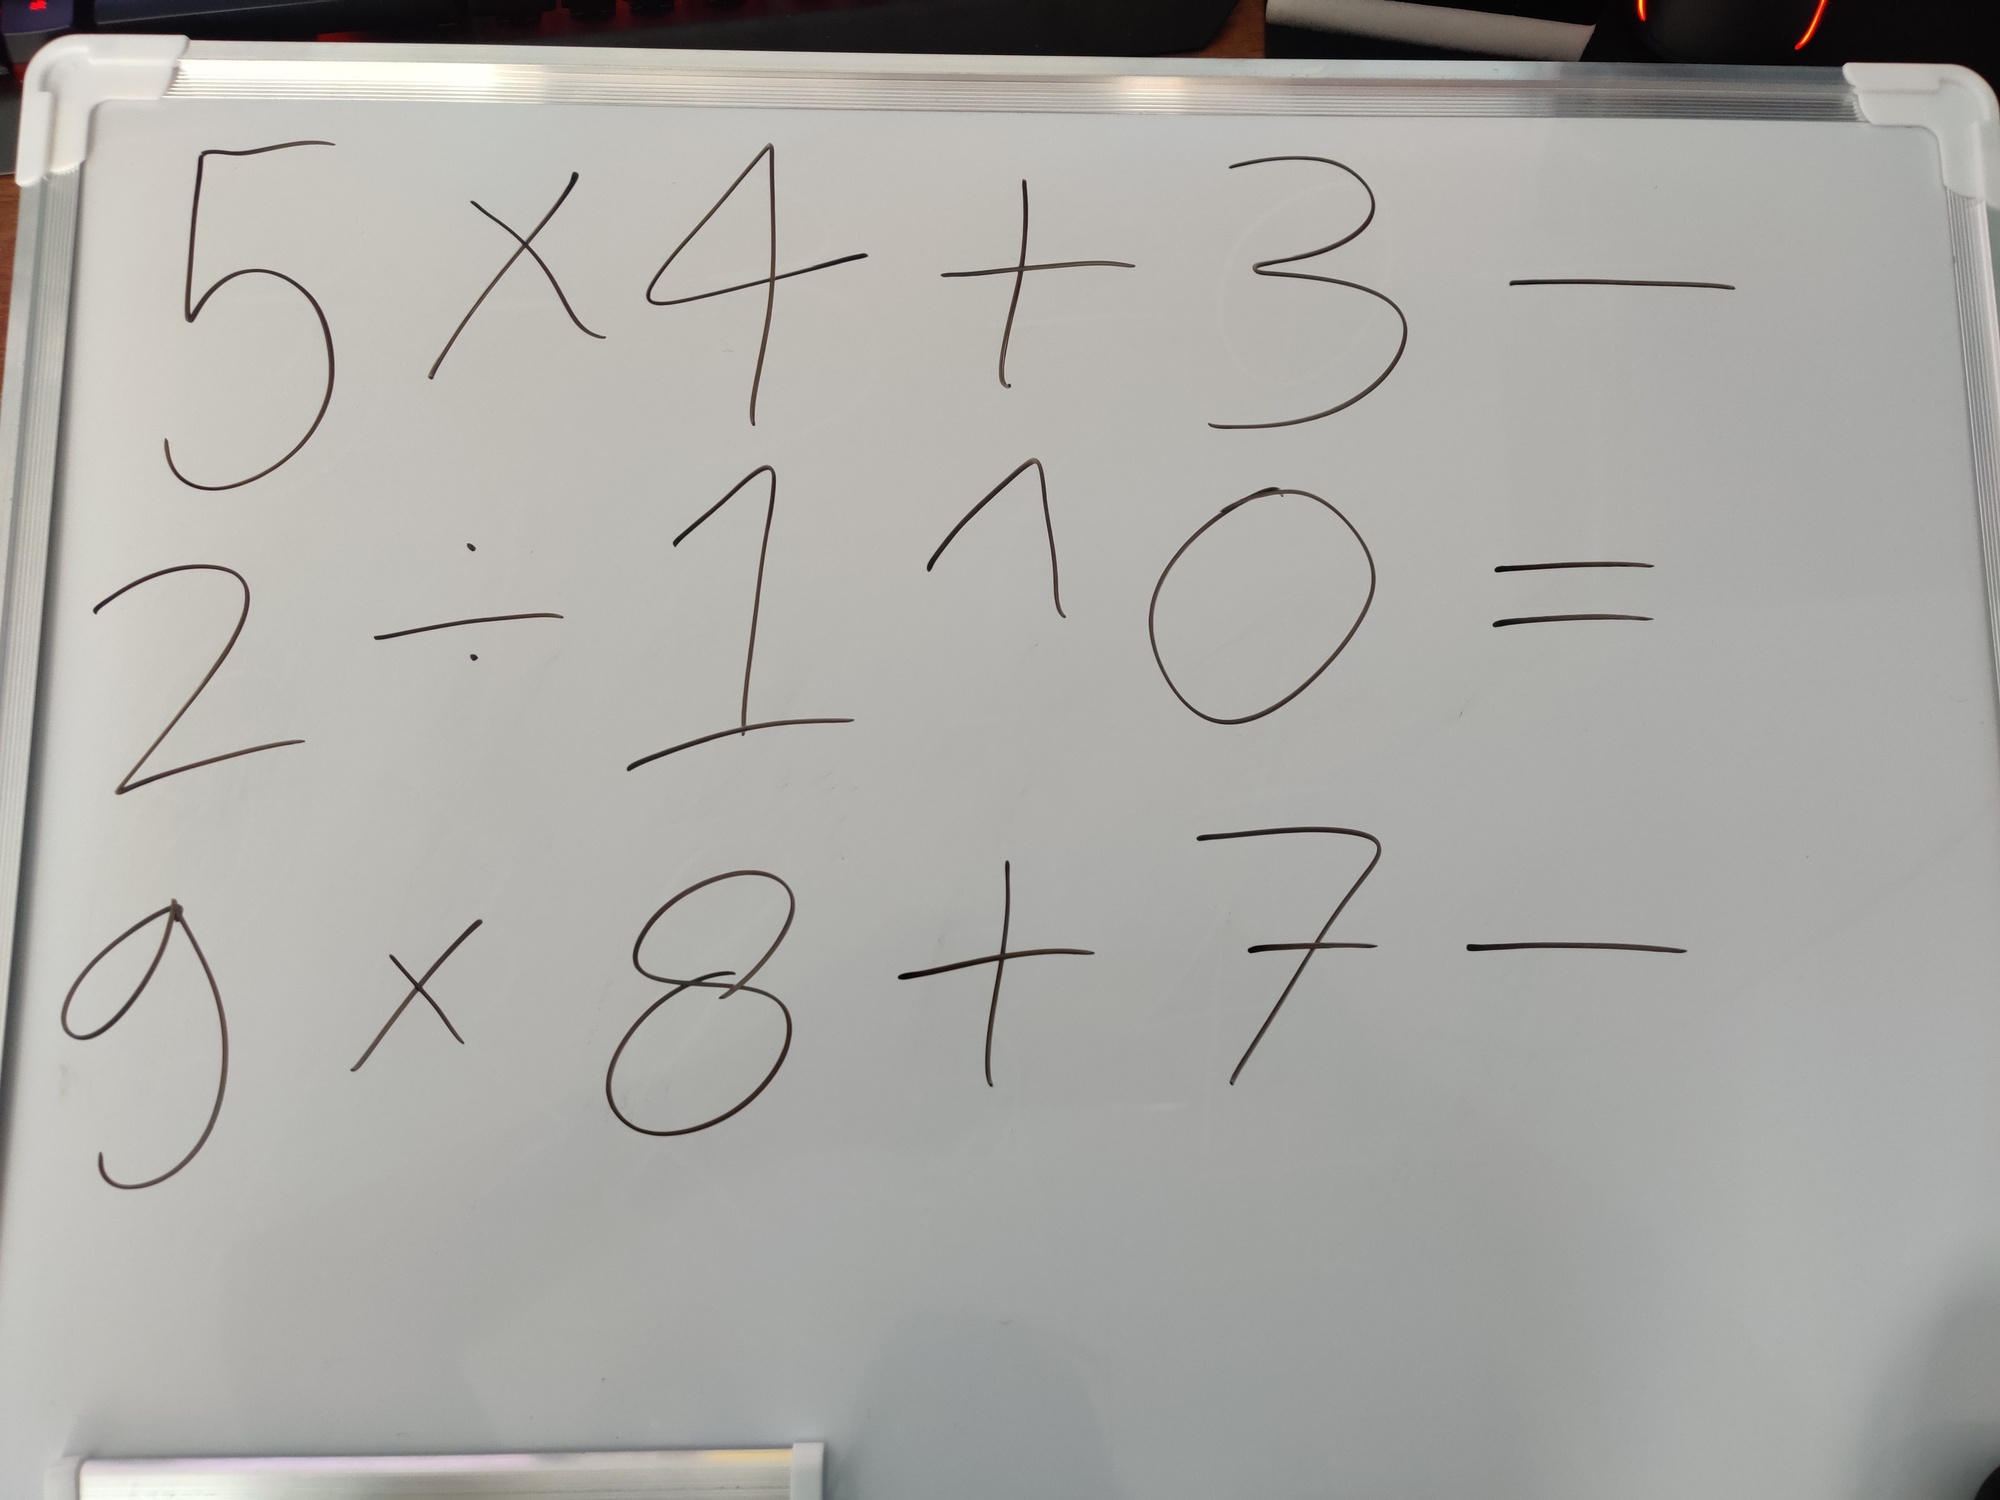 5 × 4 + 3 −
2 ÷ 1 ^ 0 =
9 × 8 + 7 −